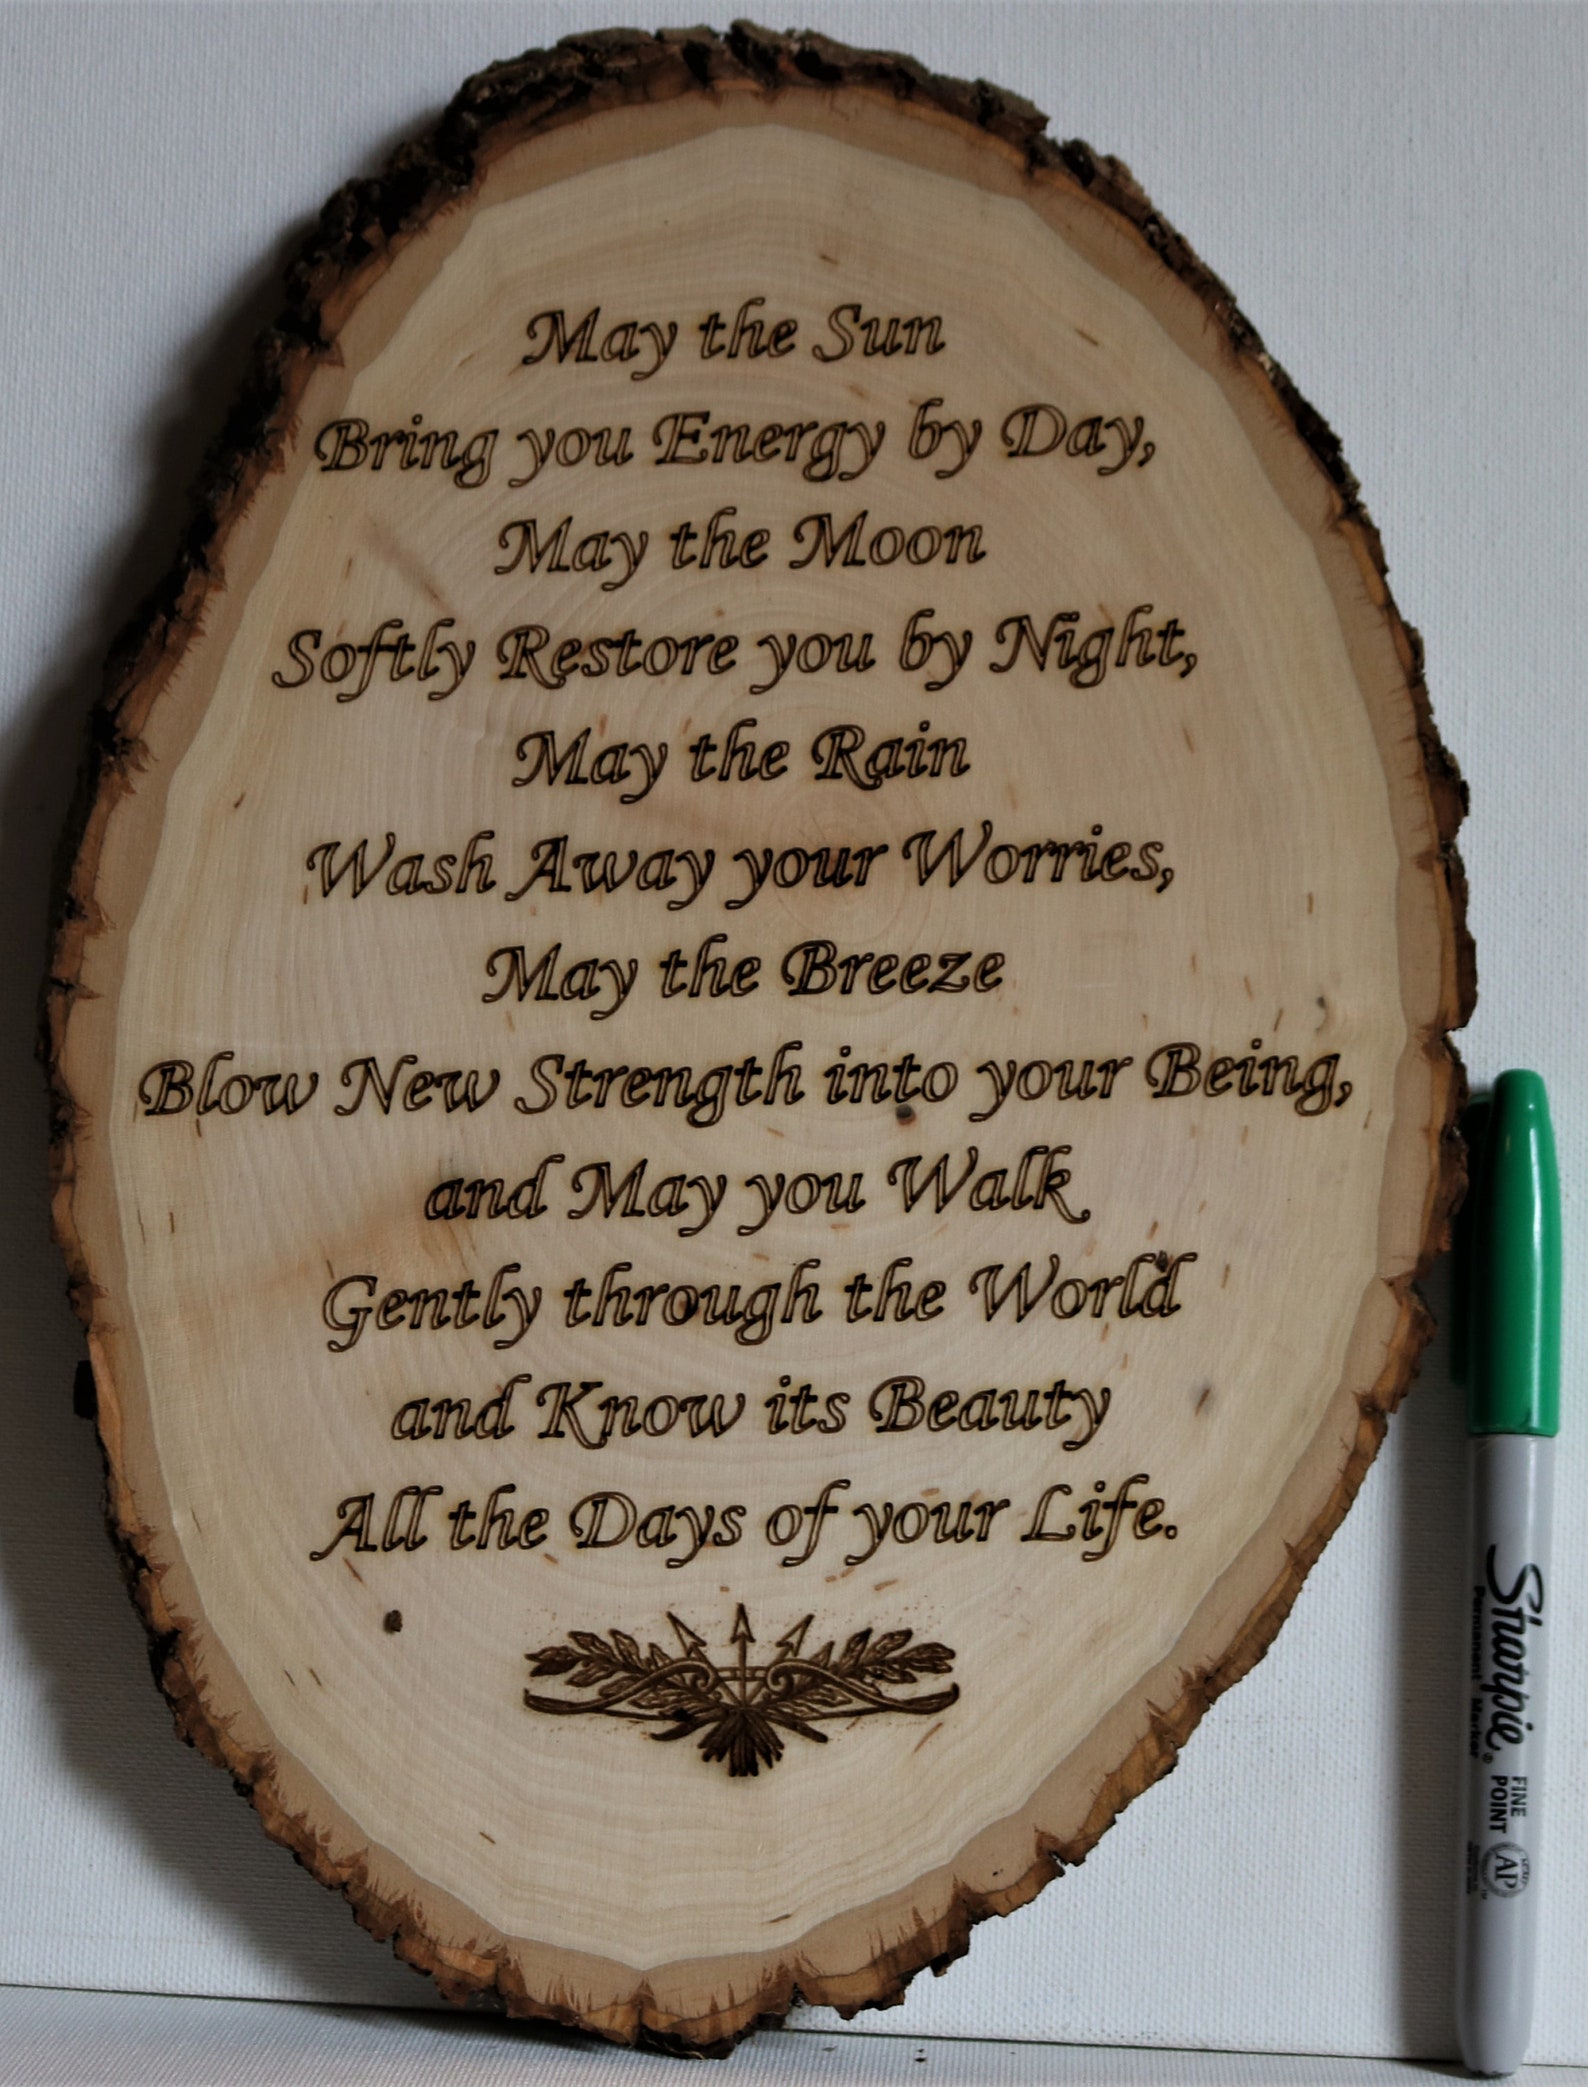 May the Sun
Bring you Energy by Day,
May the Moon
Softly Restore you by Night,
May the Rain
Wash Away your Worries,
May the Breeze
Blow New Strength into your Being,
and May you Walk
Gently through the World
and Know its Beauty
All the Days of your Life.
Sharpie®
Permanent Marker
FINE
POINT
AP